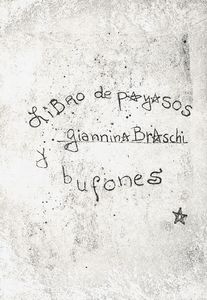 LiBRo de pAyASoS
giAnninA BrAschi
y
bufones